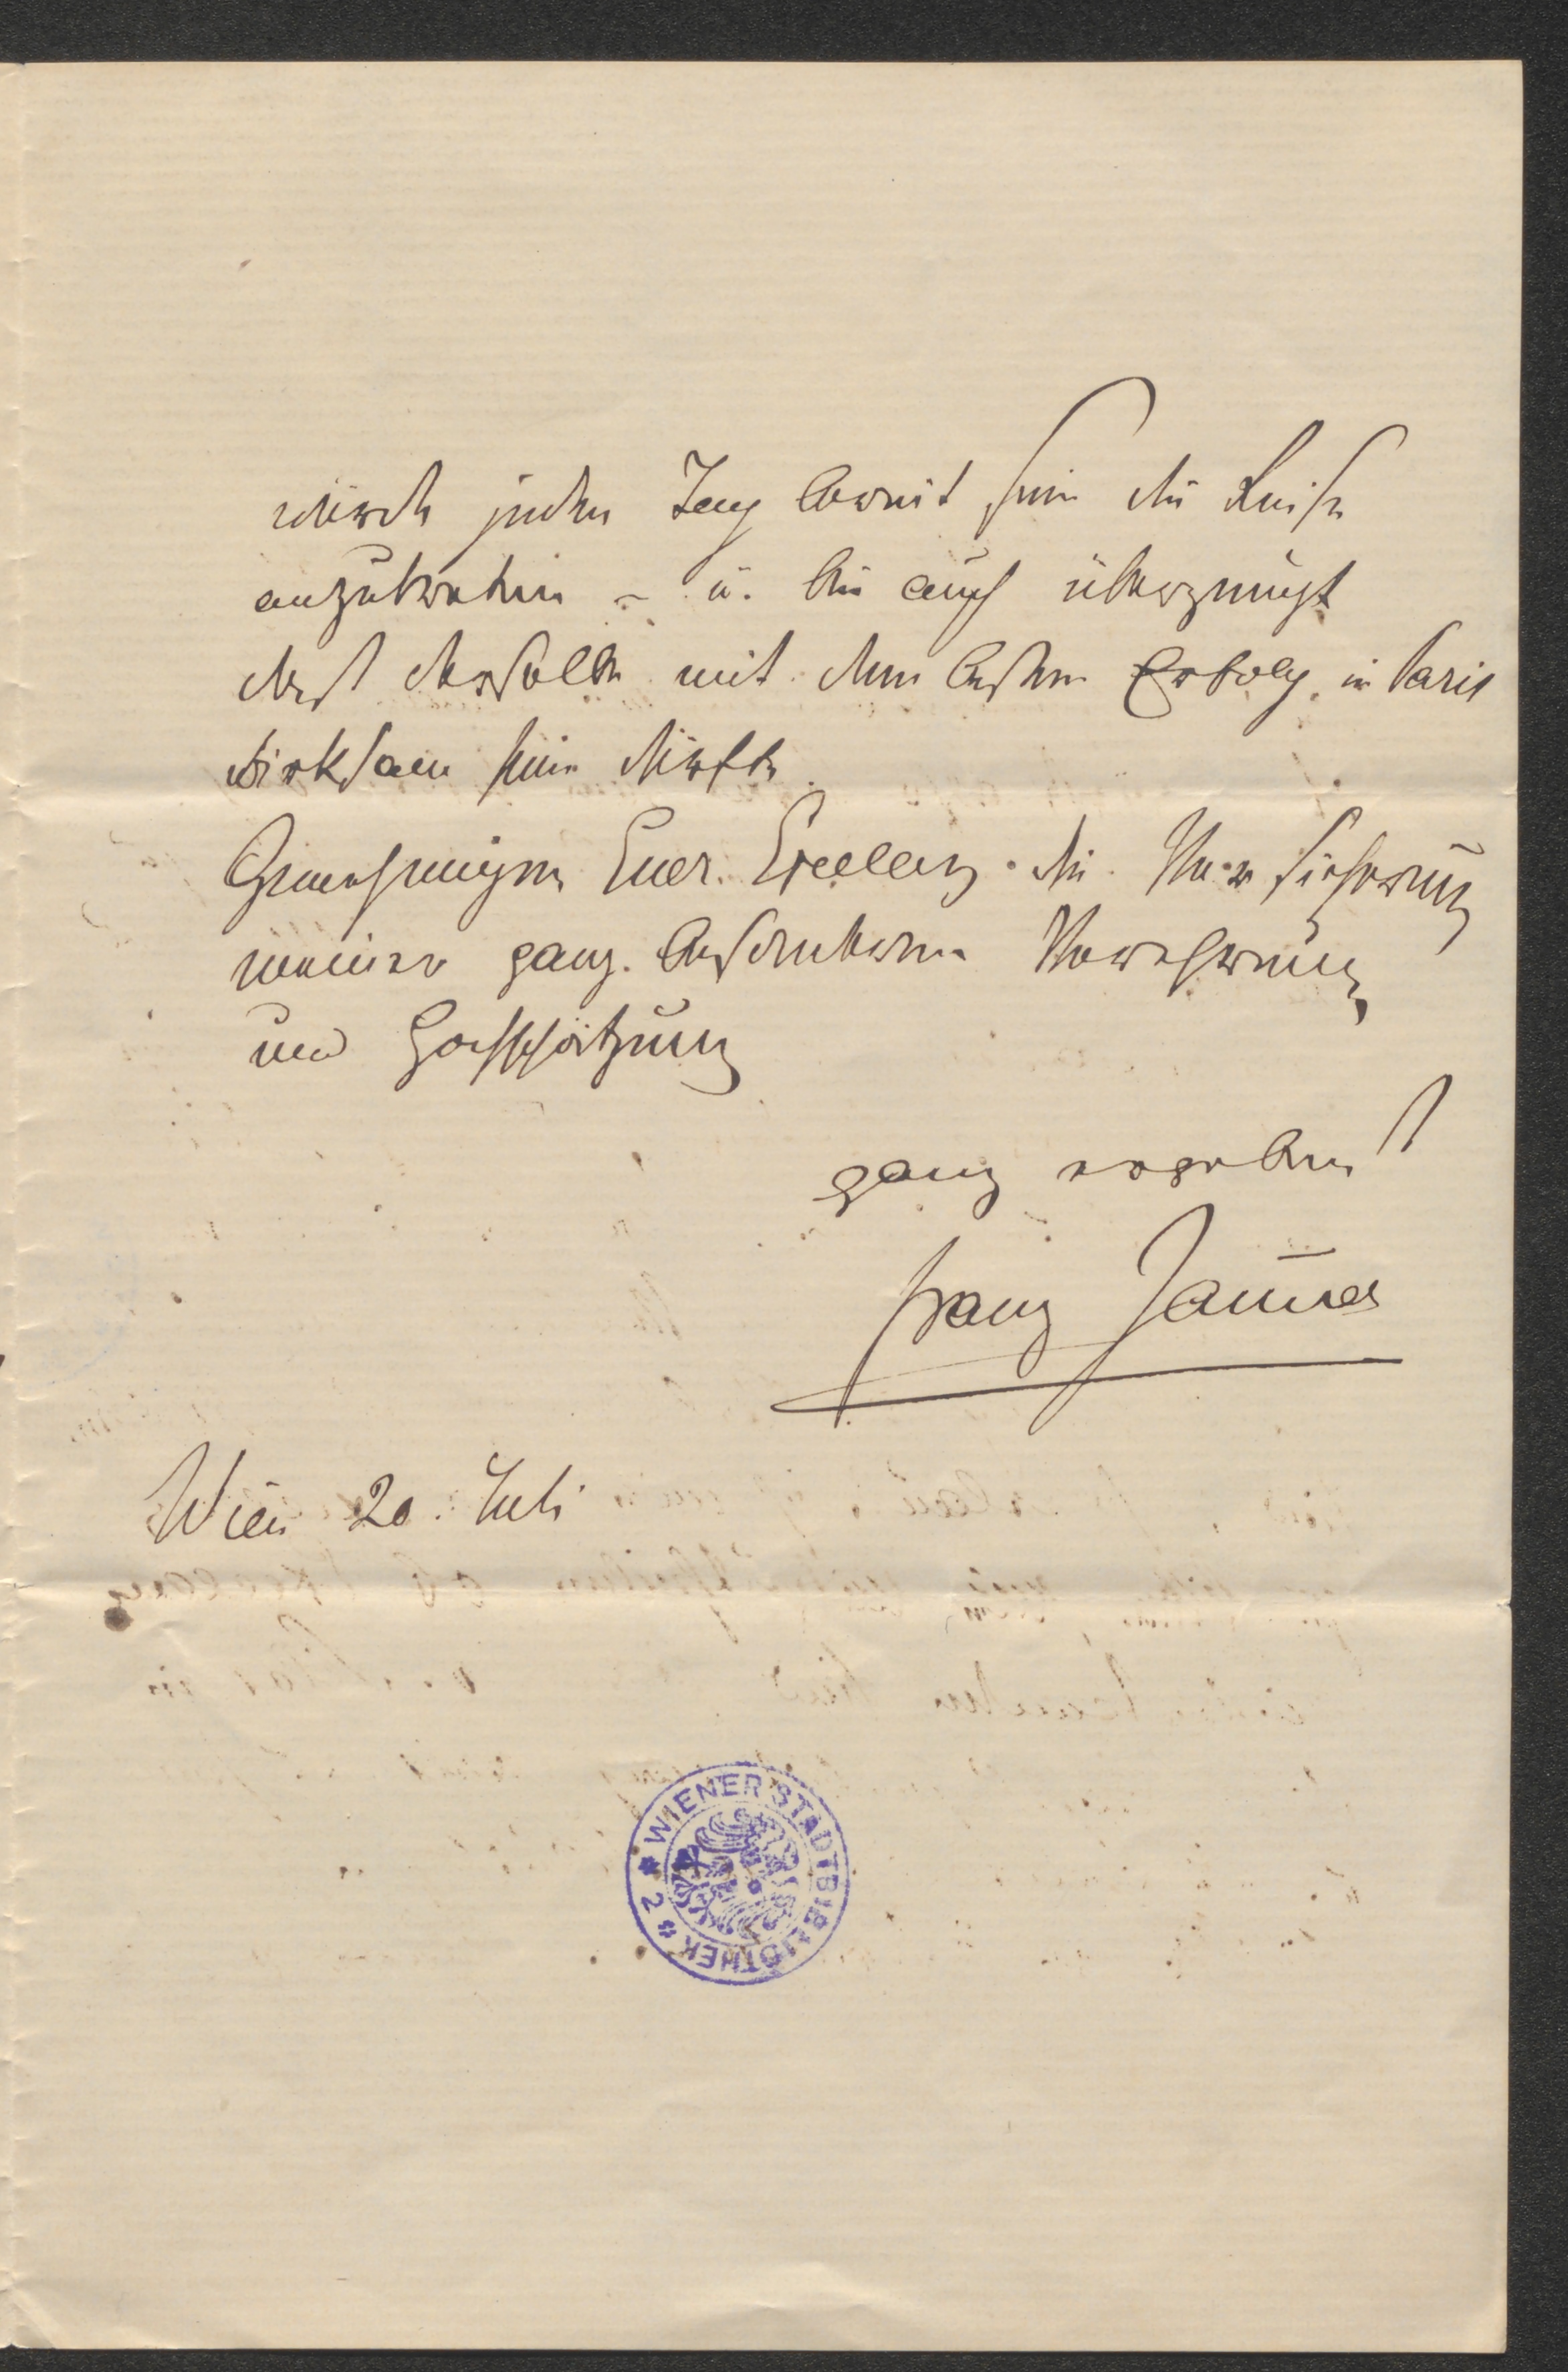 würde jeden Tag bereit sein die Reise
anzutreten – u. bin auch überzeugt
daß derselbe mit dem besten Erfolg in Paris
wirksam sein dürfte.
Genehmigen Euer Excellenz die Versicherung
meiner ganz besonderen Verehrung
und Hochschätzung
ganz ergebenst
Franz Jauner
Wien 20. Juli
WIENER STADTBIBLIOTHEK * 2 *